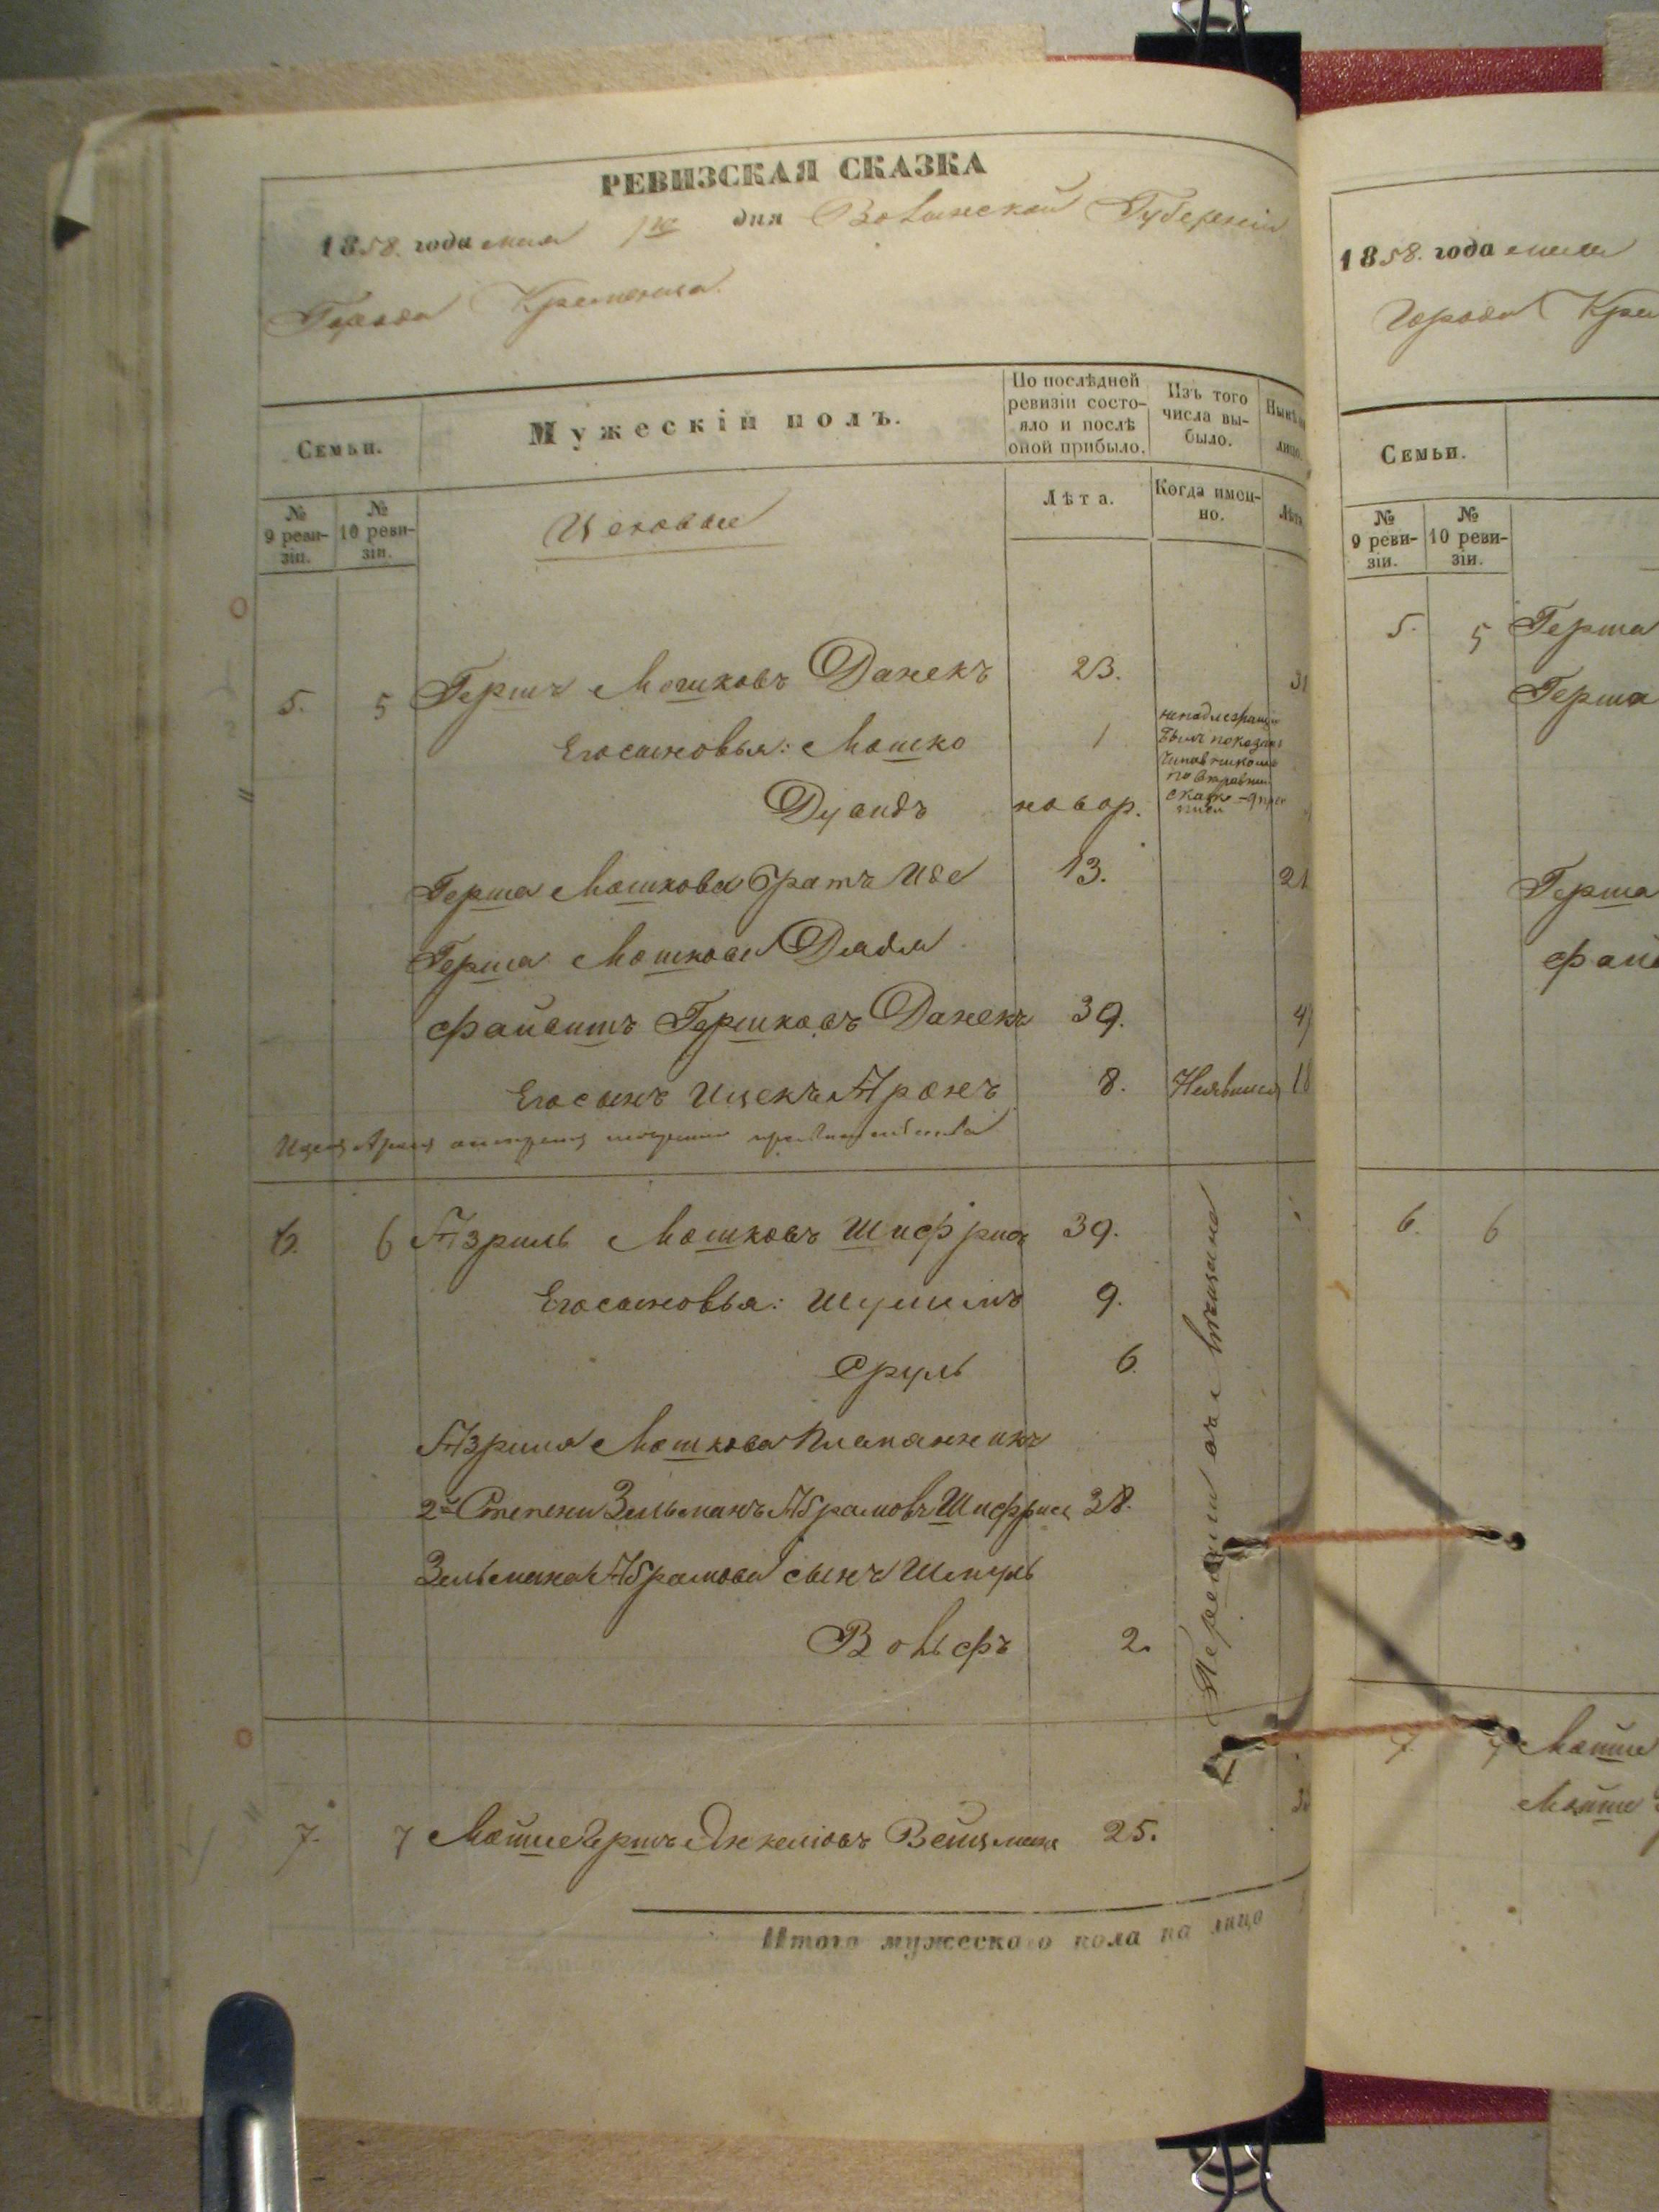 РЕВИЗСКАЯ СКАЗКА
1858. года мая 1го дня Волынской Губерніи
Города Кременца.
Семьи.
Мужескій полъ.
По послѣдней ревизіи состо-
яло и послѣ
оной прибыло.
Изъ того
числа вы-
было.
Нынѣ
лицо.
№
9 реви-
зіи.
№
10 реви-
зіи.
Цеховые
Лѣта.
Когда имен-
но.
Лѣта
5. 5 Гершъ Мошковъ Данекъ 23. 31
Его сыновья: Мошко 1
Дувидъ новор.
былъ показанъ
по
Герша Мошкова братъ Иде 13. 21
Герша Мошкова Дядя
Файвишъ Гершковъ Данекъ 39. 47
Его сынъ Ицекъ Аронъ 8. Неявился
6. 6 Азриль Мошковъ Шифрис 39.
Его сыновья: Шулимъ 9.
Сруль 6.
Азриля Мошкова Племянникъ
2й Степени Зельманъ Абрамовъ Шифрис 38.
Зельмана Абрамова сынъ Шмуль
Вольфъ 2.
7. 7 Мойше Гершъ Янкелiовъ Вейцман 25.
Итого мужескаго пола на лицо
1858. года мая
Города Кре
Семьи.
№
9 реви-
зіи.
№
10 реви-
зіи.
5. 5 Герша
Герша
Герша
Фай
6. 6
7. 7 Мойше
Мойше